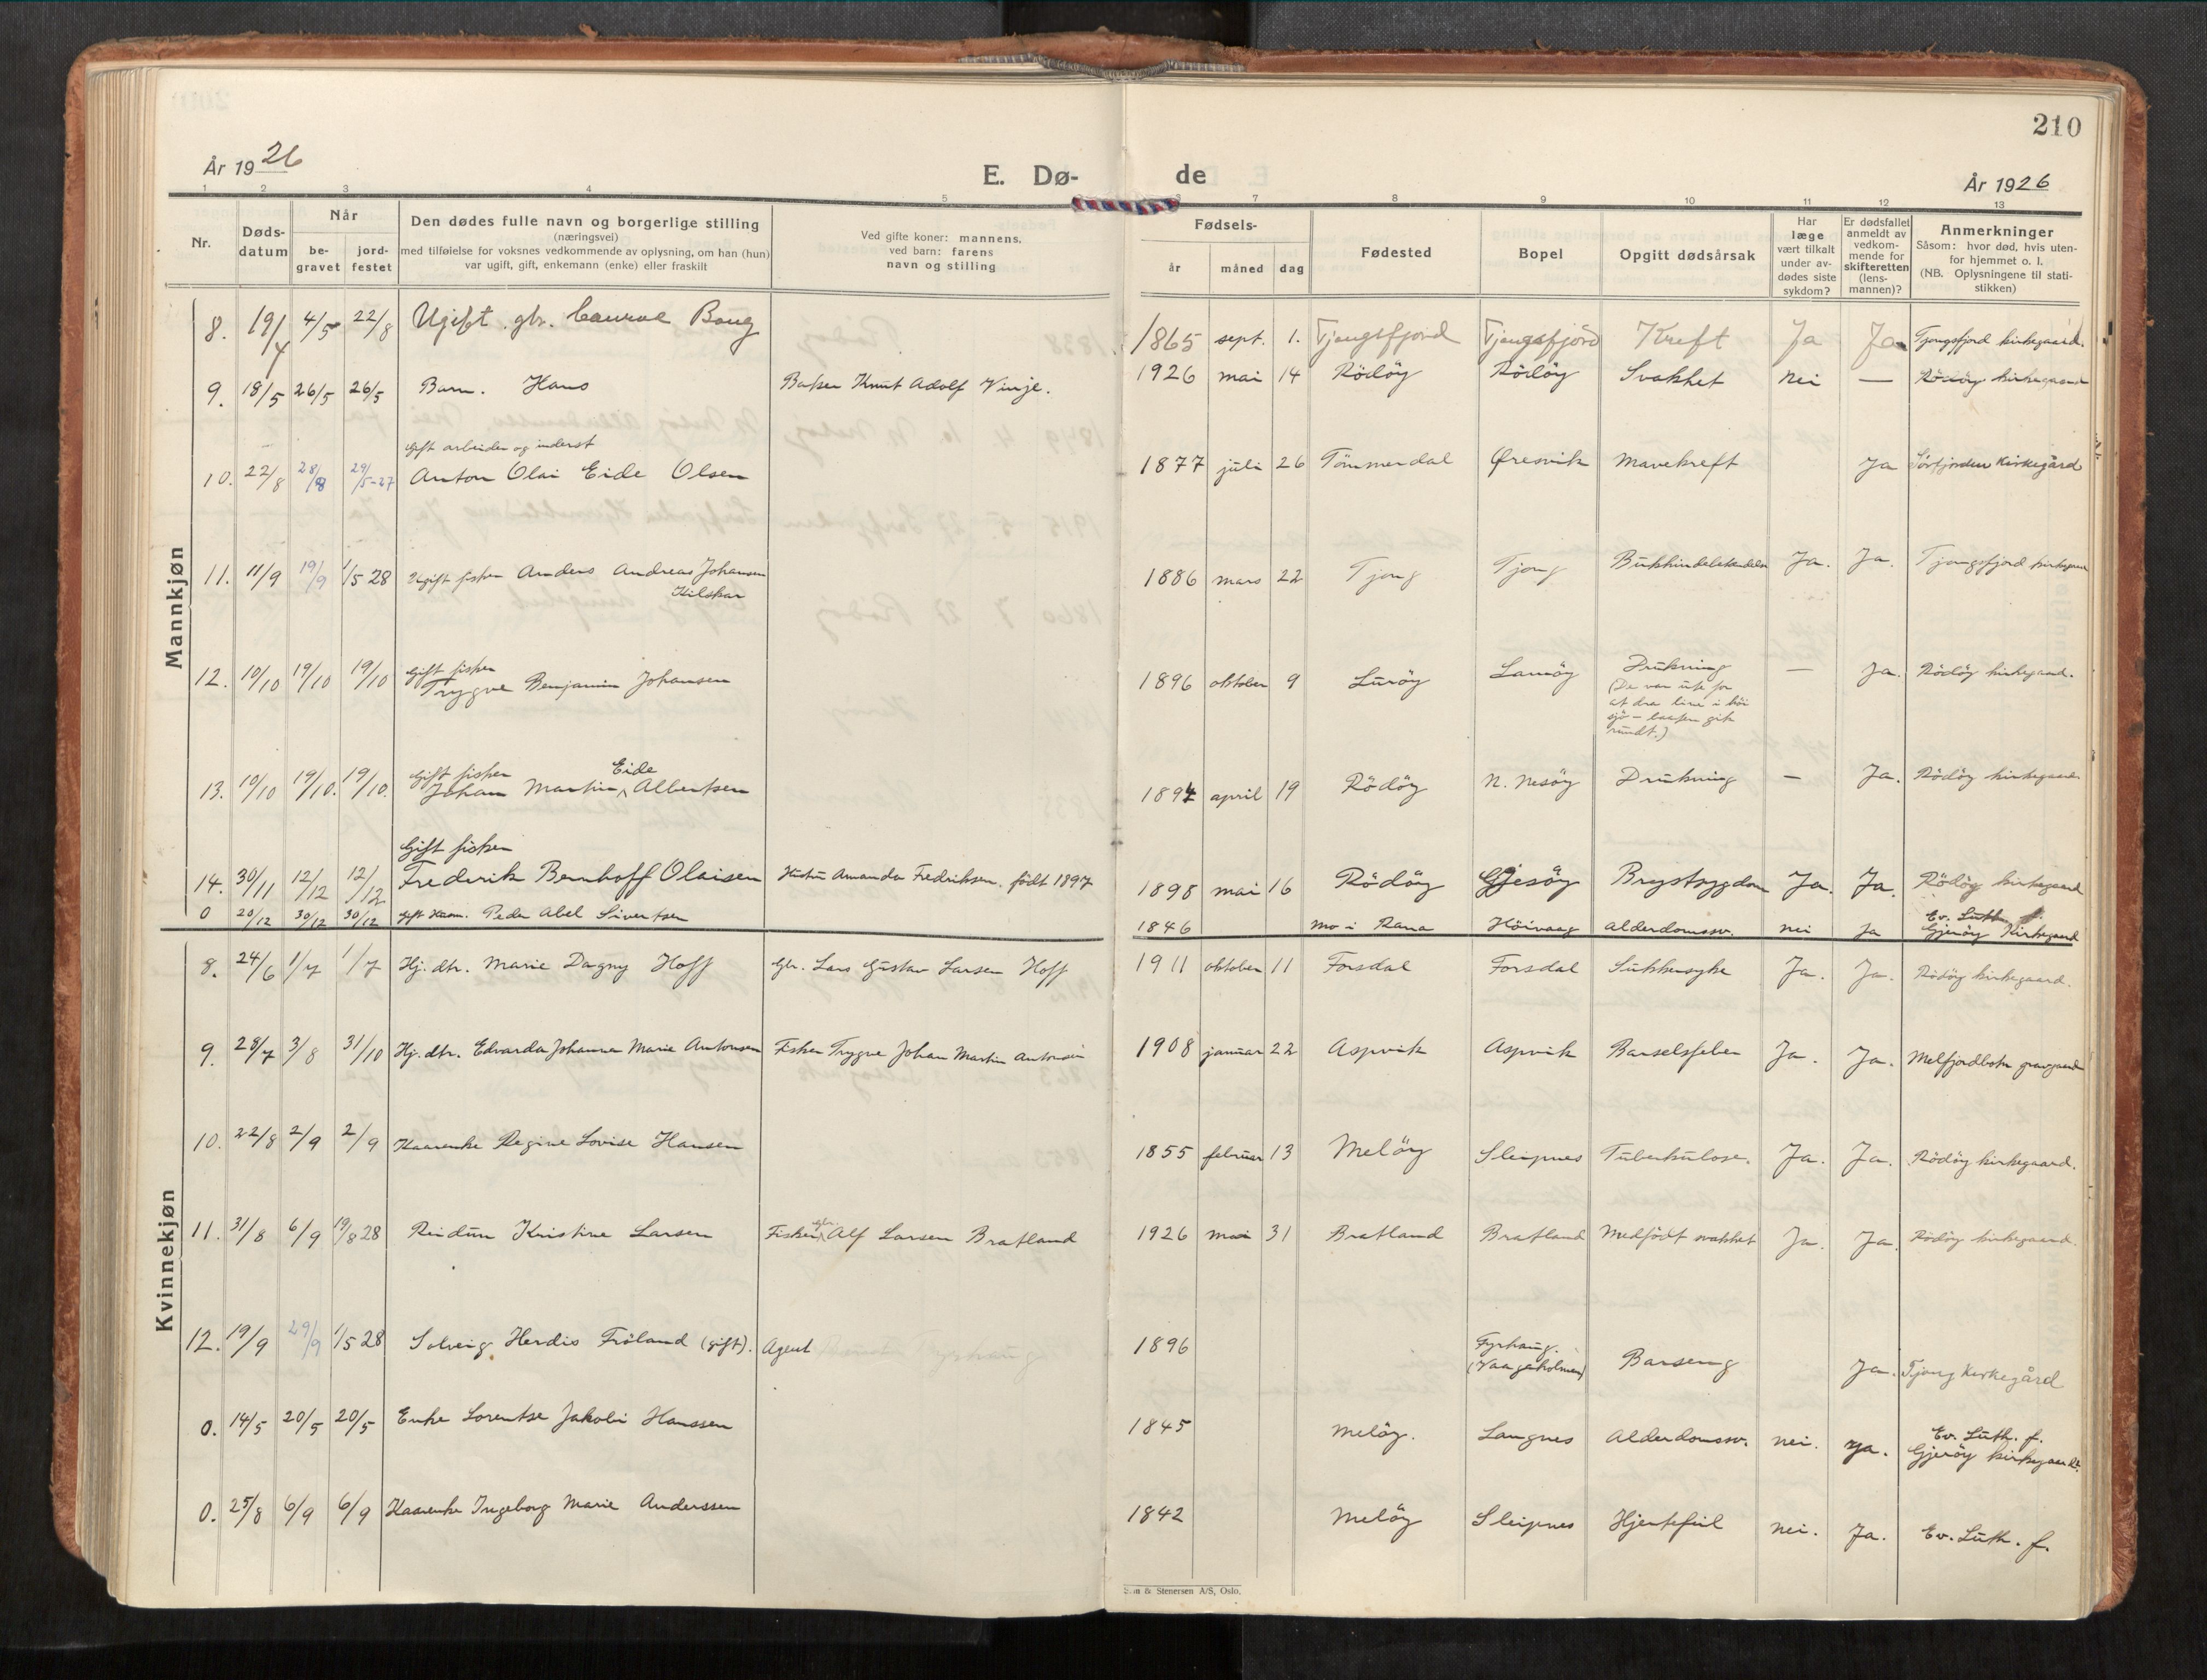 210
År 1926
E. Dø-
de
År 1926
1 2 3 4 5
7 8 9 10 11 12 13
Nr.
Døds-
datum
Når
be-
gravet
jord-
festet
Den dødes fulle navn og borgerlige stilling
(næringsvei)
med tilføielse for voksnes vedkommende av oplysning, om han (hun)
var ugift, gift, enkemann (enke) eller fraskilt
Ved gifte koner: mannens,
ved barn: farens
navn og stilling
Fødsels-
år måned dag
Fødested
Bopel
Opgitt dødsårsak
Har
læge
vært tilkalt
under av-
dødes siste
sykdom?
Er dødsfallet
anmeldt av
vedkom-
mende for
skifteretten
(lens-
mannen)?
Anmerkninger
Såsom: hvor død, hvis uten-
for hjemmet o. l.
(NB. Oplysningene til stati-
stikken)
Mannkjøn
8. 19/4 4/5 22/8 Ugift gbr. 1865 sept. 1. Tjongsfjord Tjongsfjord Kreft Ja Ja Tjongsfjord kirkegaard.
9. 18/5 26/5 26/5 Barn. Hans Baker Knut Adolf Vinje. 1926 mai 14 Rödöy Rödöy Svakhet nei — Rödöy kirkegaard
Gift arbeider og inderst
10. 22/8 28/8 29/5-27 Anton Olai Eide Olsen 1877 juli 26 Tömmerdal Øresvik Mavekreft Ja Sörfjorden Kirkegård
11. 11/9 19/9 1/5 28 Ugift fisker Anders Andreas Johansen
Kilskar
1886 mars 22 Tjong Tjong Ja. Ja. Tjongsfjord kirkegaard
Gift fisker
12. 10/10 19/10 19/10 Trygve Benjamin Johansen 1896 oktober 9 Luröy Drukning — Ja. Rödöy kirkegaard.
(De var ute for
at dra line i höi
sjö – baaten gik
rundt.)
Gift fisker Eide
13. 10/10 19/10. 19/10. Johan Martin Albertsen 1894 april 19 Rödöy N. Nesöy Drukning — Ja. Rödöy kirkegaard
Gift fisker
14. 30/11 12/12 12/12 Frederik Bernhoff Olaisen Hustru Amanda Fredriksen. födt 1897 1898 mai 16 Rödöy Gjesöy Brystsygdom Ja. Ja. Rödöy kirkegaard
0 20/12 30/12 30/12 Gift Kaarm. Peder Abel Sivertsen 1846 Mo i Rana Höivaag Alderdomssv. nei Ja Ev. Luth. f.
Gjeröy Kirkegaard
Kvinnekjøn
8. 24/6 1/7 1/7 Hj. dtr. Marie Dagny Hoff Gbr. Lars Gustav Larsen Hoff 1911 oktober 11 Forsdal Forsdal Sukkersyke Ja. Ja. Rödöy kirkegaard.
9. 28/7 3/8 31/10 Hj. dtr. Edvarda Johanna Marie Antonsen Fisker Trygve Johan Martin Antonsen 1908 januar 22 Aspvik Aspvik Barselsfeber Ja. Ja. Melfjordbotn gravgaard
10. 22/8 2/9 2/9 Kaarenke Regine Lovise Hansen 1855 februar 13 Melöy Sleipnes Tuberkulose. Ja. Ja. Rödöy kirkegaard.
11. 31/8 6/9 19/8 28 Reidun Kristine Larsen Fisker gbr. Alf Larsen Bratland 1926 mai 31 Bratland Bratland Medfödt svakhet Ja. Ja. Rödöy kirkegaard.
12. 19/9 29/9 1/5 28 Solveig Herdis Fröland (gift). Agent 1896 Fyrhaug.
(Vaagaholmen)
Barseng Ja. Tjong Kirkegård
0. 14/5 20/5 20/5 Enke Lorentse Jakobi Hanssen 1845 Melöy. Langnes Alderdomssv. nei. Ja. Ev. Luth. f.
Gjeröy kirkegaard.
0. 25/8 6/9 6/9 Kaarenke Ingeborg Marie Anderssen 1842 Melöy Sleipnes Hjertefeil nei. Ja. Ev. Luth. f.
& Stenersen A/S, Oslo.